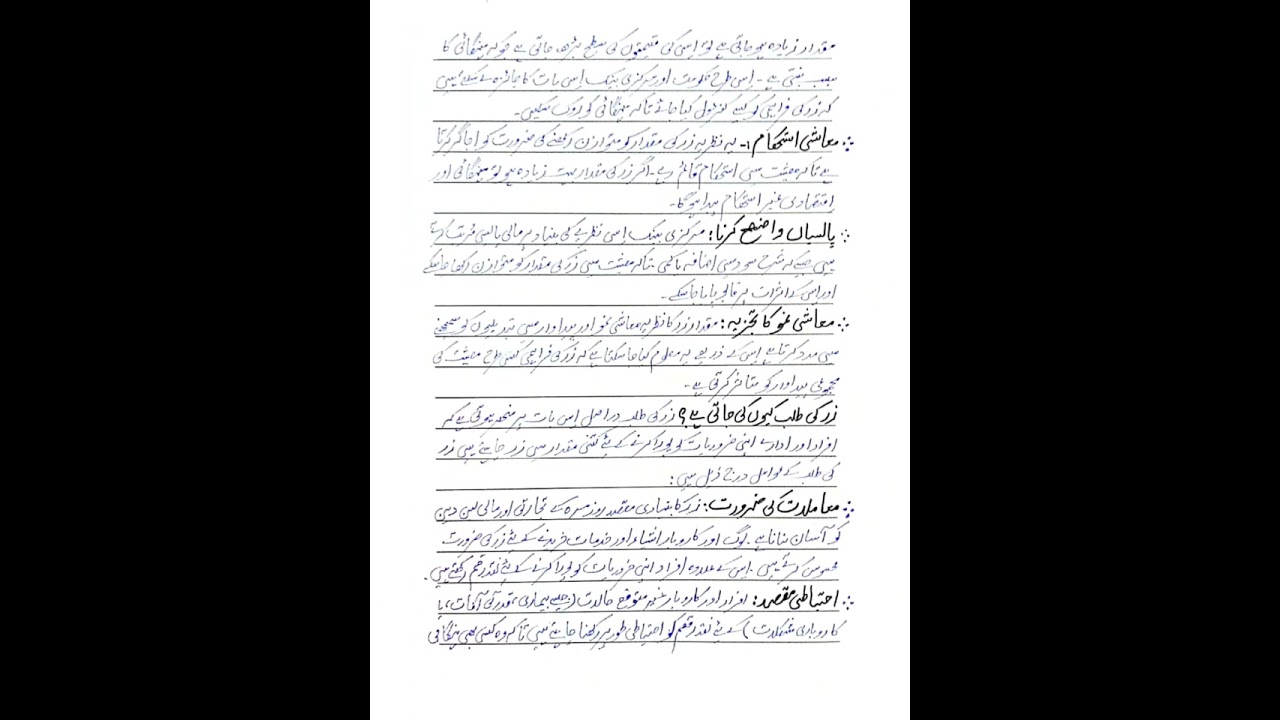 مقدار زیادہ ہو جاتی ہے تو اس کی قیمتوں کی سطح بڑھ جاتی ہے جو کہ مہنگائی کا
سبب بنتی ہے ۔ اسی طرح حکومت اور مرکزی بینک اس بات کا جائزہ لے سکتے ہیں
کہ زر کی فراہمی کو کیسے کنٹرول کیا جائے تاکہ مہنگائی کو روک سکیں۔
معاشی استحکام :۔ یہ نظریہ زر کی مقدار کو متوازن رکھنے کی ضرورت کو اجاگر کرتا
ہے تاکہ معیشت میں استحکام قائم رہے۔ اگر زر کی مقدار بہت زیادہ ہو تو مہنگائی اور
اقتصادی غیر استحکام پیدا ہوگا۔
پالسیاں واضح کرنا: مرکزی بینک اس نظریے کی بنیاد پر مالی پالسی مرتب کرتے
ہیں جیسے کہ شرح سود میں اضافہ یا کمی۔ تاکہ معیشت میں زر کی مقدار کو متوازن رکھا جا سکے
اور اس کے اثرات پر قابو پایا جا سکے۔
معاشی نمو کا تجزیہ: مقدار زر کا نظریہ معاشی نمو اور پیداوار میں تبدیلیوں کو سمجھنے
میں مدد کرتا ہے اس کے ذریعے یہ معلوم کیا جا سکتا ہے کہ زر کی فراہمی کس طرح معیشت کی
مجموعی پیداوار کو متاثر کرتی ہے۔
زر کی طلب کیوں کی جاتی ہے؟ زر کی طلب دراصل اس بات پر منحصر ہوتی ہے کہ
افراد اور ادارے اپنی ضروریات کو پورا کرنے کے لئے کتنی مقدار میں زر چاہتے ہیں زر
کی طلب کے عوامل درج ذیل ہیں:
معاملات کی ضرورت: زر کا بنیادی مقصد روز مرہ کے تجارتی اور مالی لین دین
کو آسان بنانا ہے۔ لوگ اور کاروبار اشیاء اور خدمات خریدنے کے لئے زر کی ضرورت
محسوس کرتے ہیں۔ اس کے علاوہ افراد اپنی ضروریات کو پورا کرنے کے لئے نقد رقم رکھتے ہیں۔
احتیاطی مقصد: افراد اور کاروبار غیر متوقع حالات (جیسے بیماری، قدرتی آفات، یا
کاروباری مشکلات) کے لئے نقد رقم کو احتیاطی طور پر رکھنا چاہتے ہیں تاکہ وہ کسی بھی ہنگامی